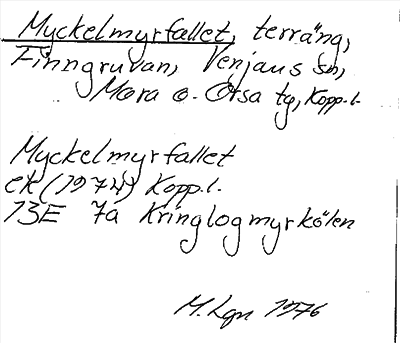 Myckelmyrfallet, terräng,
Finngruvan, Venjans sn,
Mora o. Orsa tg, Kopp.l.
Myckelmyrfallet
ek (1974) Kopp.l.
13E 7a Kringlogmyrkölen
M. Lgn 1976